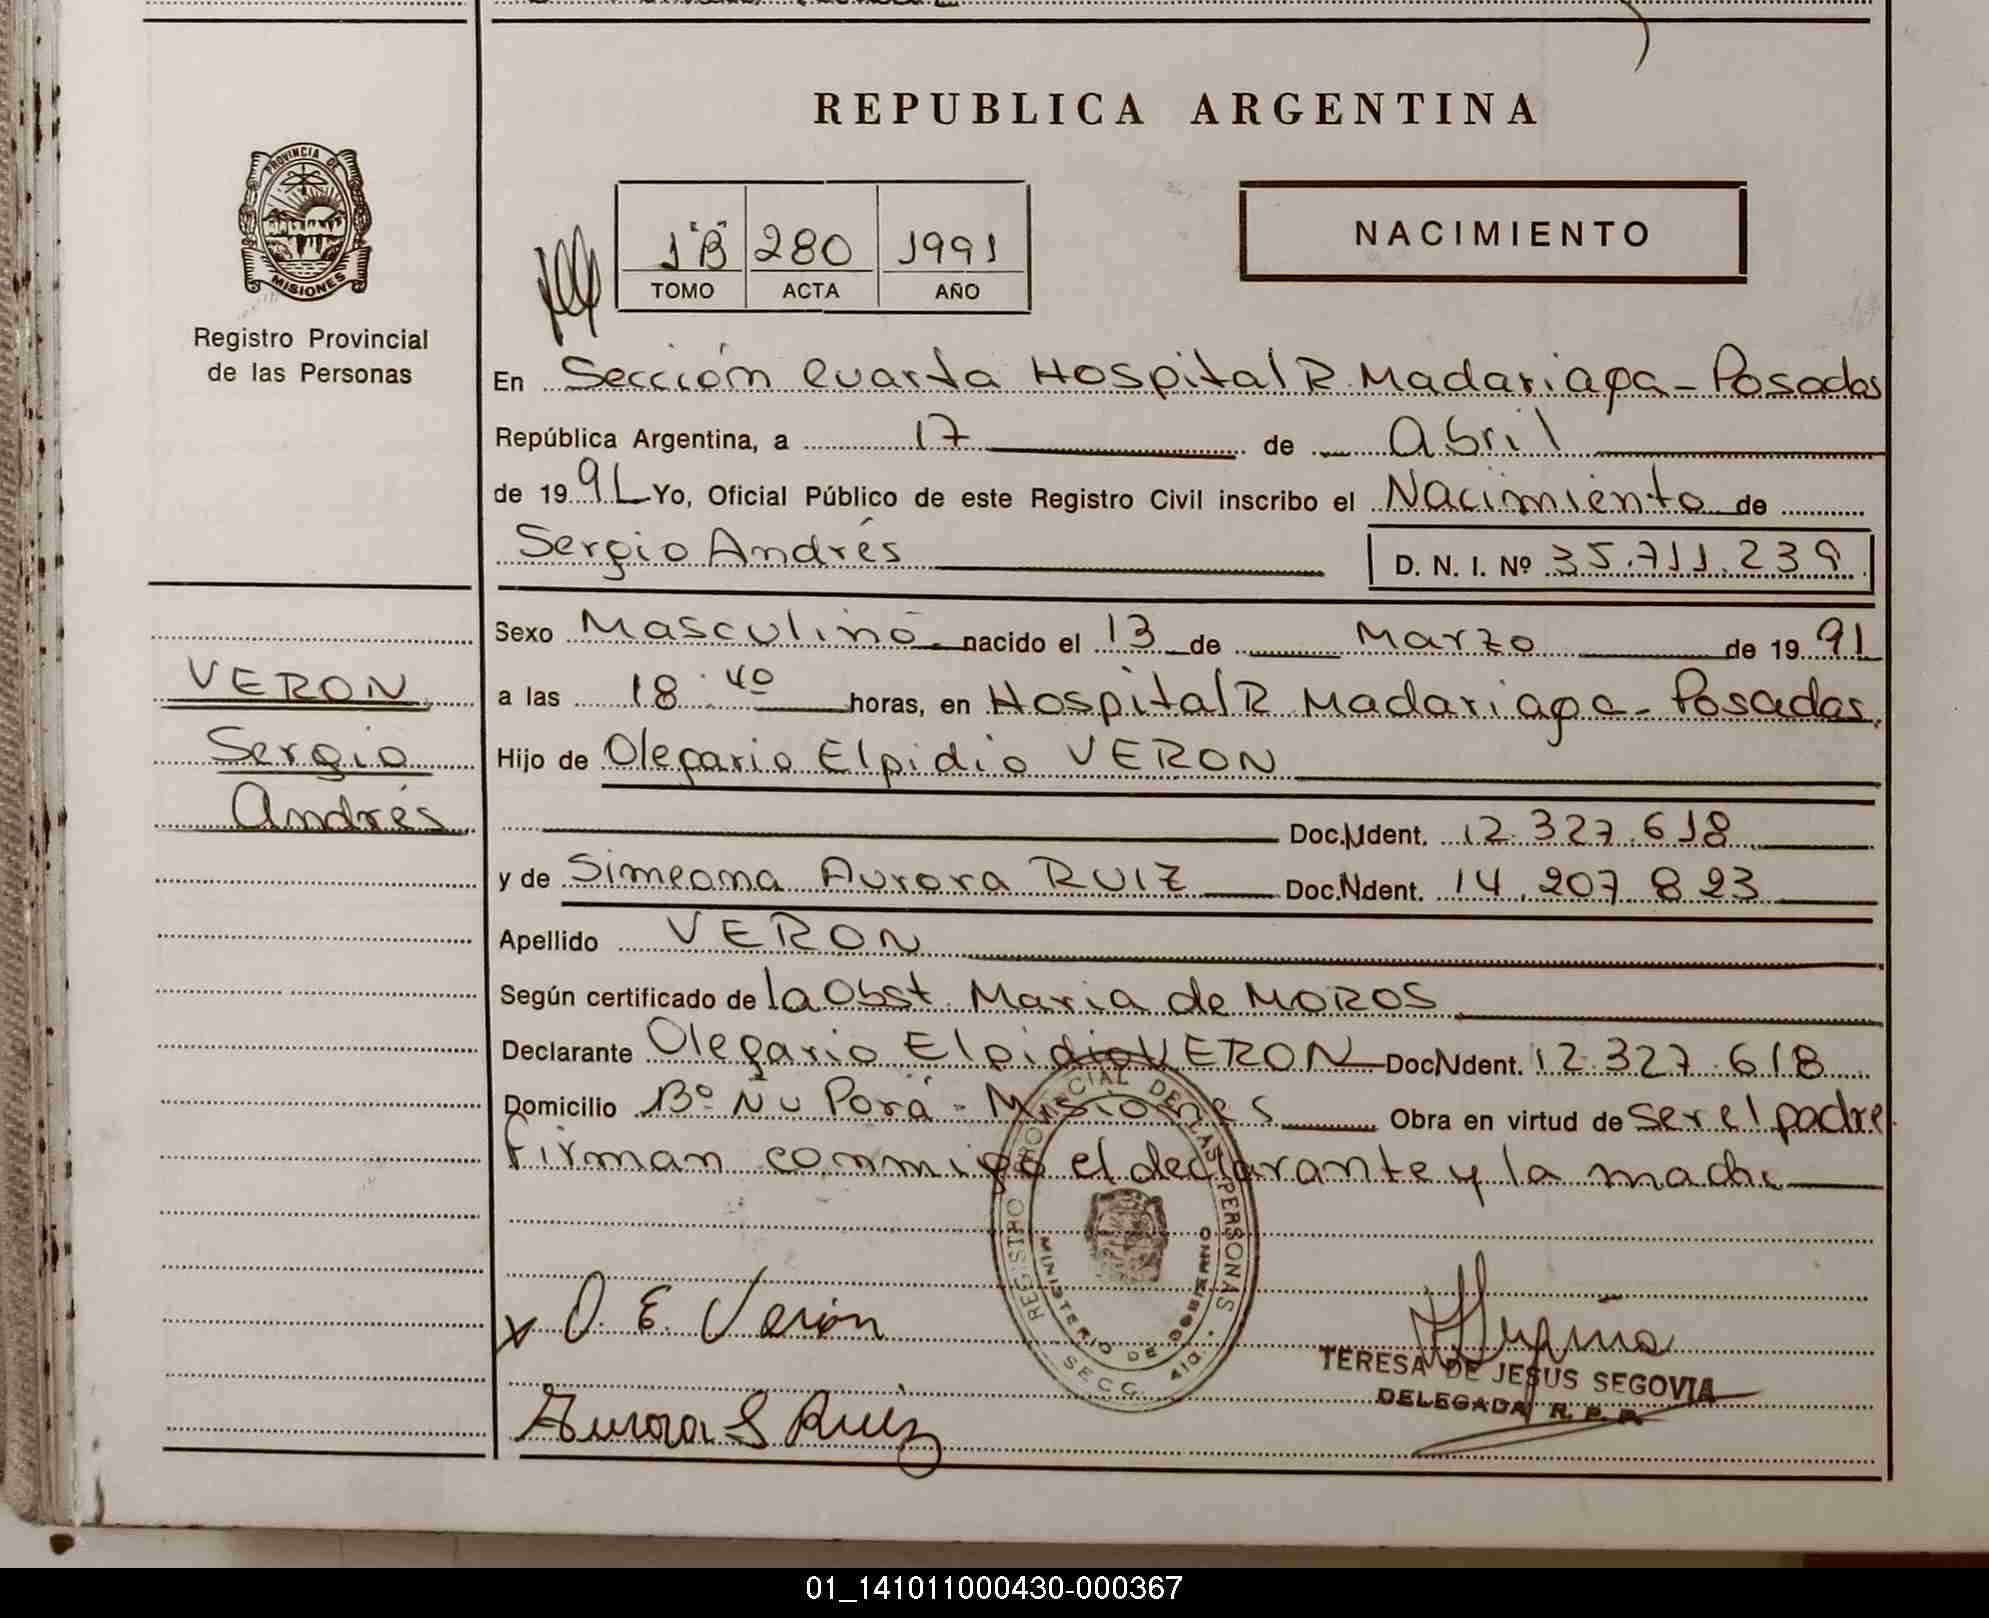 REPUBLICA ARGENTINA
PROVINCIA DE
MISIONES
Registro Provincial
de las Personas
1"B" 280 1991
TOMO ACTA AÑO
NACIMIENTO
En Sección Cuarta Hospital R. Madariaga - Posadas
República Argentina, a 17 de Abril
de 1991 Yo, Oficial Público de este Registro Civil inscribo el Nacimiento de
Sergio Andrés
D. N. I. Nº 35.711.239
VERON
Sergio
Andrés
Sexo Masculino nacido el 13 de Marzo de 1991
a las 18.40 horas, en Hospital R Madariaga - Posadas.
Hijo de Olegario Elpidio VERON
Doc.Ident. 12.327.618
y de Simeona Aurora RUIZ Doc.Ident. 14.207.823
Apellido VERON
Según certificado de la Obst. Maria de MOROS
Declarante Olegario Elpidio VERON Doc.Ident. 12.327.618
Domicilio Bº Ñu Porá - Misiones Obra en virtud de ser el padre
Firman conmigo el declarante y la madre
REGISTRO PROVINCIAL DE LAS PERSONAS
MINISTERIO DE GOBIERNO
SECC. 4ta.
x O. E. Verón
Aurora S Ruiz
TERESA DE JESUS SEGOVIA
DELEGADA R. P. P.
01_141011000430-000367